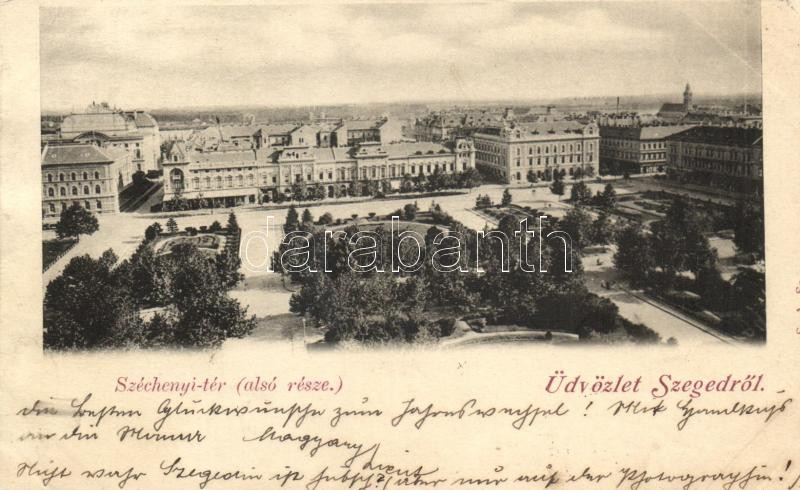 darabanth
Széchenyi-tér (alsó része.) Üdvözlet Szegedről.
die besten Glückwünsche zum Jahreswechsel! Mit
an die Mama Magyary
Nicht wahr Szegedin ist hübsch? aber nur auf der Photographie!